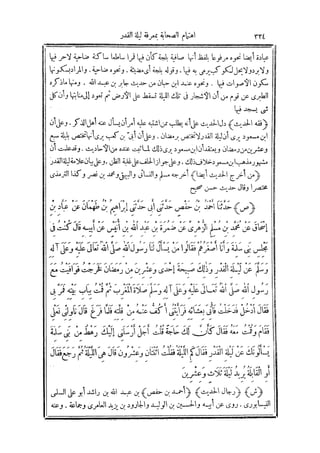 ٣٣٤ اهتمام الصحابة بمعرفة ليلة القدر
عبادة أيضا نحوه مرفوعا بلفظ أنها صافية بلجة كأن فيها قمرا ساطعا ساكنة ضاحية لا حر فيها
ولا برد ولا يحل لكوكب يرمى به فيها. وقوله بلجة أى مضيئة. ونحوه ضاحية. والمراد بسكونها
سكون الأصوات فيها. ونحوه عند ابن حبان من حديث جابر بن عبد الله. ومنها ما ذكره
الطبرى عن قوم من أن الأشجار فى تلك الليلة تسقط على الأرض ثم تعود إلى منابتها وأن كل
شىء يسجد فيها
﴿فقه الحديث﴾ دل الحديث على أنه يطلب ممن اشتبه عليه أمر أن يسأل عنه أهل الذكر. وعلى أن
ابن مسعود يرى أن ليلة القدر لا تختص برمضان. وعلى أن أبىّ بن كعب يرى أنها تختص بليلة سبع
وعشرين من رمضان ويعتقد أن ابن مسعود يرى ذلك لما ثبت عنده من الأحاديث. وقد علمت أن
مشهور مذهب ابن مسعود خلاف ذلك. وعلى جواز الحلف على غلبة الظن. وعلى بيان علامة ليلة القدر
﴿من أخرج الحديث أيضا﴾ أخرجه مسلم والنسائى والبيهقى ومحمد بن نصر وكذا الترمذى
مختصرا وقال حديث حسن صحيح
﴿ص﴾ حَدَّثَنَا أَحْمَدُ بْنُ حَفْصٍ حَدَّثَنِى أَبِى حَدَّثَنِى إِبْرَاهِيمُ بْنُ طَهْمَانَ عَنْ عَبَّادِ بْنِ
إِسْحَاقَ عَنْ مُحَمَّدِ بْنِ مُسْلِمٍ الزُّهْرِىِّ عَنْ ضَمْرَةَ بْنِ عَبْدِ اللهِ بْنِ أُنَيْسٍ عَنْ أَبِيهِ قَالَ كُنْتُ فِى
مَجْلِسِ بَنِى سَلِمَةَ وَأَنَا أَصْغَرُهُمْ فَقَالُوا مَنْ يَسْأَلُ لَنَا رَسُولَ اللهِ صَلَّى اللهُ تَعَالَى عَلَيْهِ وَعَلَى آلِهِ
وَسَلَّمَ عَنْ لَيْلَةِ الْقَدْرِ وَذَلِكَ صَبِيحَةَ إِحْدَى وَعِشْرِينَ مِنْ رَمَضَانَ فَخَرَجْتُ فَوَافَيْتُ مَعَ
رَسُولِ اللهِ صَلَّى اللهُ تَعَالَى عَلَيْهِ وَعَلَى آلِهِ وَسَلَّمَ صَلَاةَ الْمَغْرِبِ ثُمَّ قُمْتُ بِبَابِ بَيْتِهِ فَمَرَّ بِى
فَقَالَ ادْخُلْ فَدَخَلْتُ فَأُتِىَ بِعَشَائِهِ فَرَآنِى أَكُفُّ عَنْهُ مِنْ قِلَّتِهِ فَلَمَّا فَرَغَ قَالَ نَاوِلْنِى نَعْلِى
فَقَامَ وَقُمْتُ مَعَهُ فَقَالَ كَأَنَّ لَكَ حَاجَةً قُلْتُ أَجَلْ أَرْسَلَنِى إِلَيْكَ رَهْطٌ مِنْ بَنِى سَلِمَةَ
يَسْأَلُونَكَ عَنْ لَيْلَةِ الْقَدْرِ فَقَالَ كَمِ اللَّيْلَةُ فَقُلْتُ اثْنَتَانِ وَعِشْرُونَ قَالَ هِىَ اللَّيْلَةُ ثُمَّ رَجَعَ فَقَالَ
أَوِ الْقَابِلَةُ يُرِيدُ لَيْلَةَ ثَلَاثٍ وَعِشْرِينَ
﴿ش﴾ ﴿رجال الحديث﴾ ﴿أحمد بن حفص﴾ بن عبد الله بن راشد أبو على السلمى
النيسابورى. روى عن أبيه والحسين بن الوليد والجارود بن يزيد العامرى وجماعة. وعنه